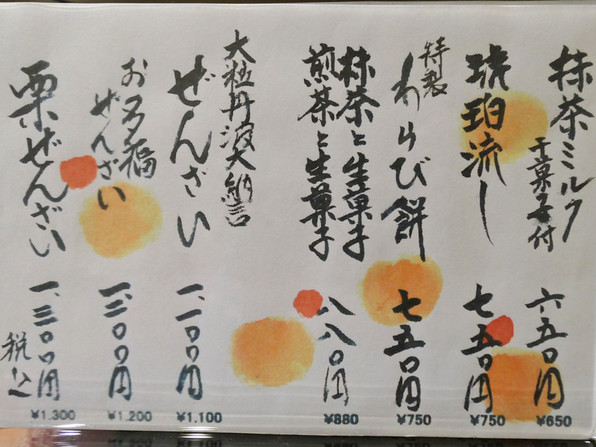 抹茶ミルク
干菓子付
六五〇円
¥650
琥珀流し
七五〇円
¥750
特製
わらび餅
七五〇円
¥750
抹茶と生菓子
煎茶と生菓子
八八〇円
¥880
大粒丹波大納言
ぜんざい
一、一〇〇円
¥1.100
お多福
ぜんざい
一、二〇〇円
¥1.200
栗ぜんざい
一、三〇〇円
¥1.300
税込